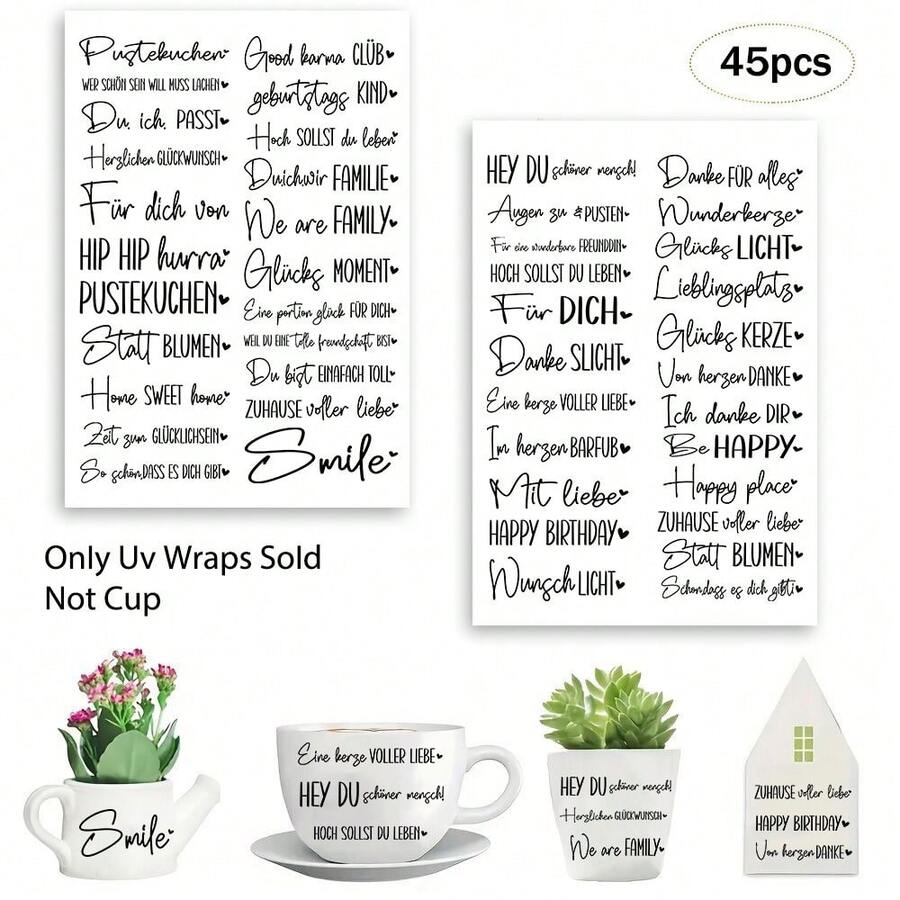 Pustekuchen
WER SCHÖN SEIN WILL MUSS LACHEN
Du, ich, PASST
Herzlichen GLÜCKWUNSCH
Für dich von
HIP HIP hurra
PUSTEKUCHEN
Statt BLUMEN
Home SWEET home
Zeit zum GLÜCKLICHSEIN
So schön, DASS ES DICH GIBT
Good karma CLÜB
geburtstags KIND
Hoch SOLLST du leben
Duichwir FAMILIE
We are FAMILY
Glücks MOMENT
Eine portion glück FÜR DICH
WEIL DU EINE tolle freundschaft BIST
Du bist EINAFACH TOLL
ZUHAUSE voller liebe
Smile
45pcs
HEY DU schöner mensch!
Augen zu & PUSTEN
Für eine wunderbare FREUNDDIN
HOCH SOLLST DU LEBEN
Für DICH
Danke SLICHT
Eine kerze VOLLER LIEBE
Im herzen BARFUB
Mit liebe
HAPPY BIRTHDAY
Wunsch LICHT
Danke FÜR alles
Wunderkerze
Glücks LICHT
Lieblingsplatz
Glücks KERZE
Von herzen DANKE
Ich danke DIR
Be HAPPY
Happy place
ZUHAUSE voller liebe
Statt BLUMEN
Schondass es dich gibti
Only Uv Wraps Sold
Not Cup
Smile
Eine kerze VOLLER LIEBE
HEY DU schöner mensch!
HOCH SOLLST DU LEBEN
HEY DU schöner mensch!
Herzlichen GLÜCKWUNSCH
We are FAMILY
ZUHAUSE voller liebe
HAPPY BIRTHDAY
Von herzen DANKE